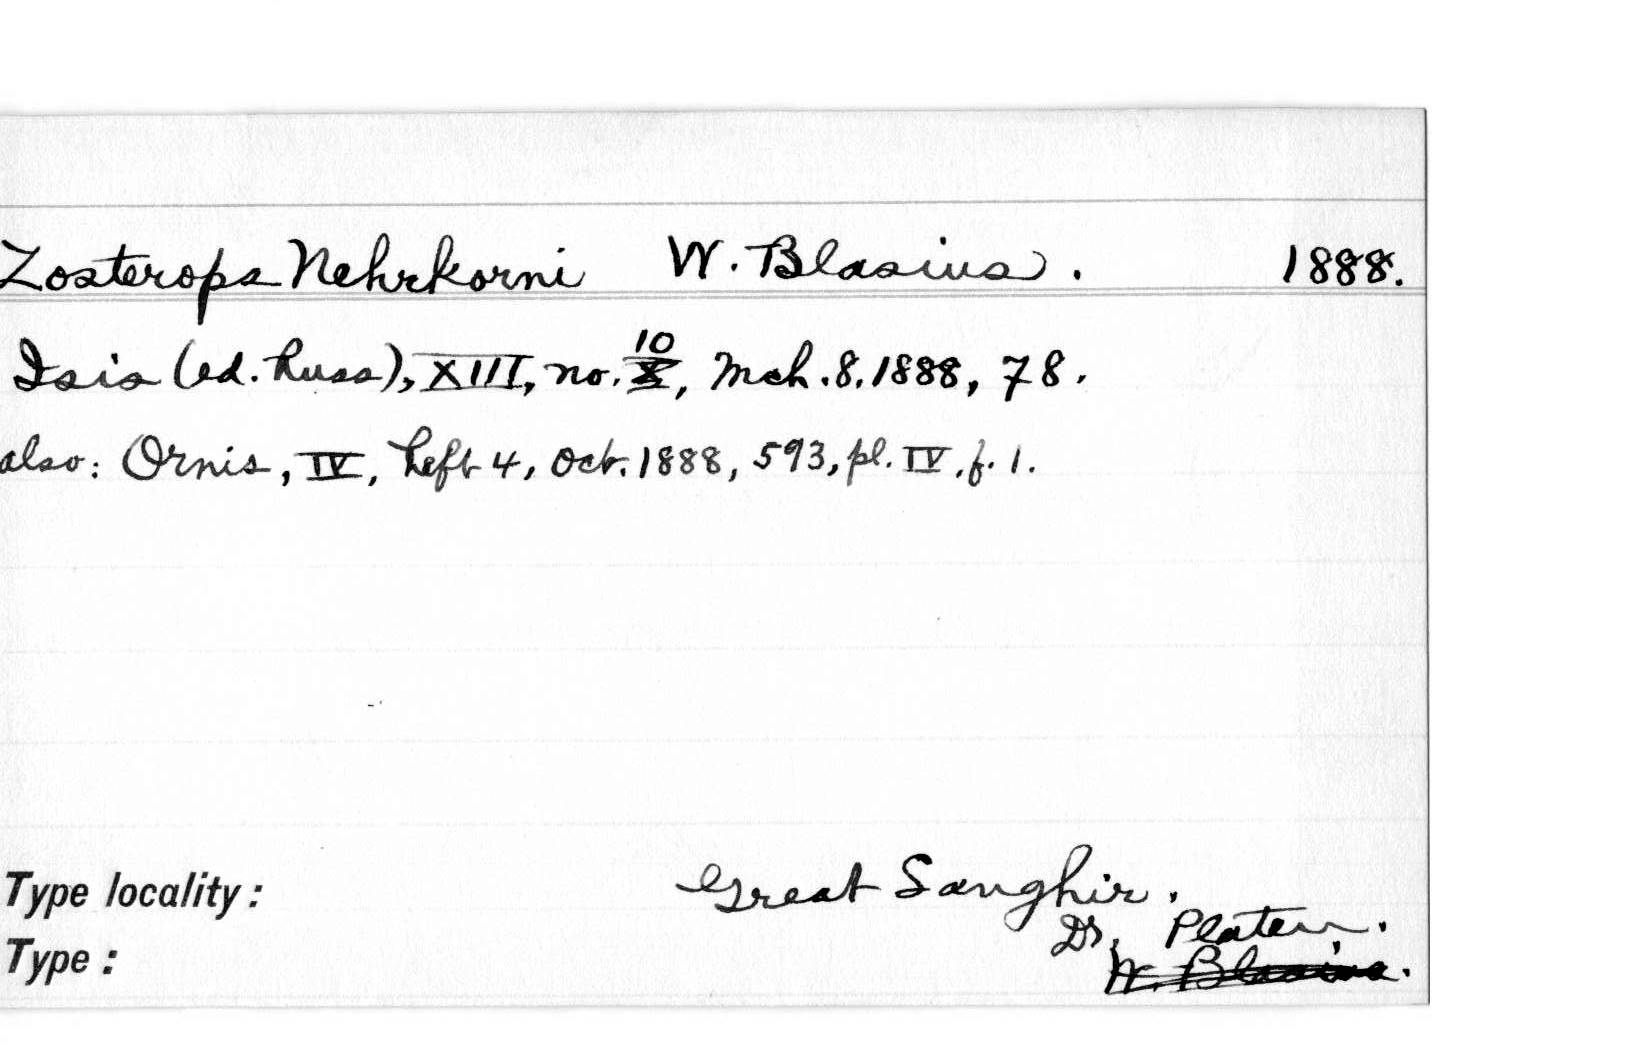 Zosterops Nehrkorni W. Blasius. 1888.
Isis (ed. Russ), XIII, no. 10, Mch. 8. 1888, 78.
also: Ornis, IV, heft 4, Oct. 1888, 593, pl. IV, f. 1.
Type locality: Great Sanghir.
Dr. Platen.
Type: W. Blasius.